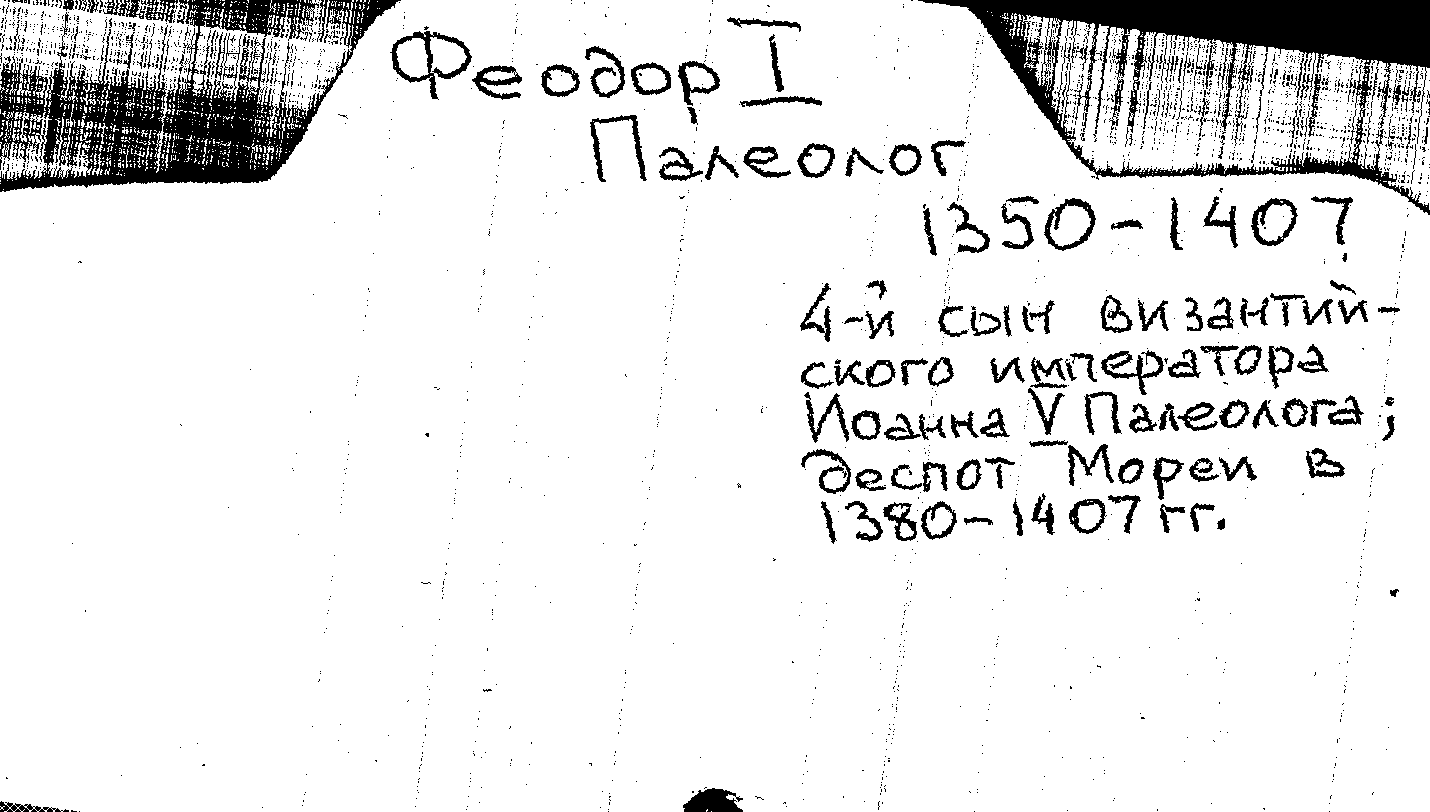 Феодор I
Палеолог
1350-1407
4-й сын византий-
ского императора
Иоанна V Палеолога;
деспот Мореи в
1380-1407 гг.